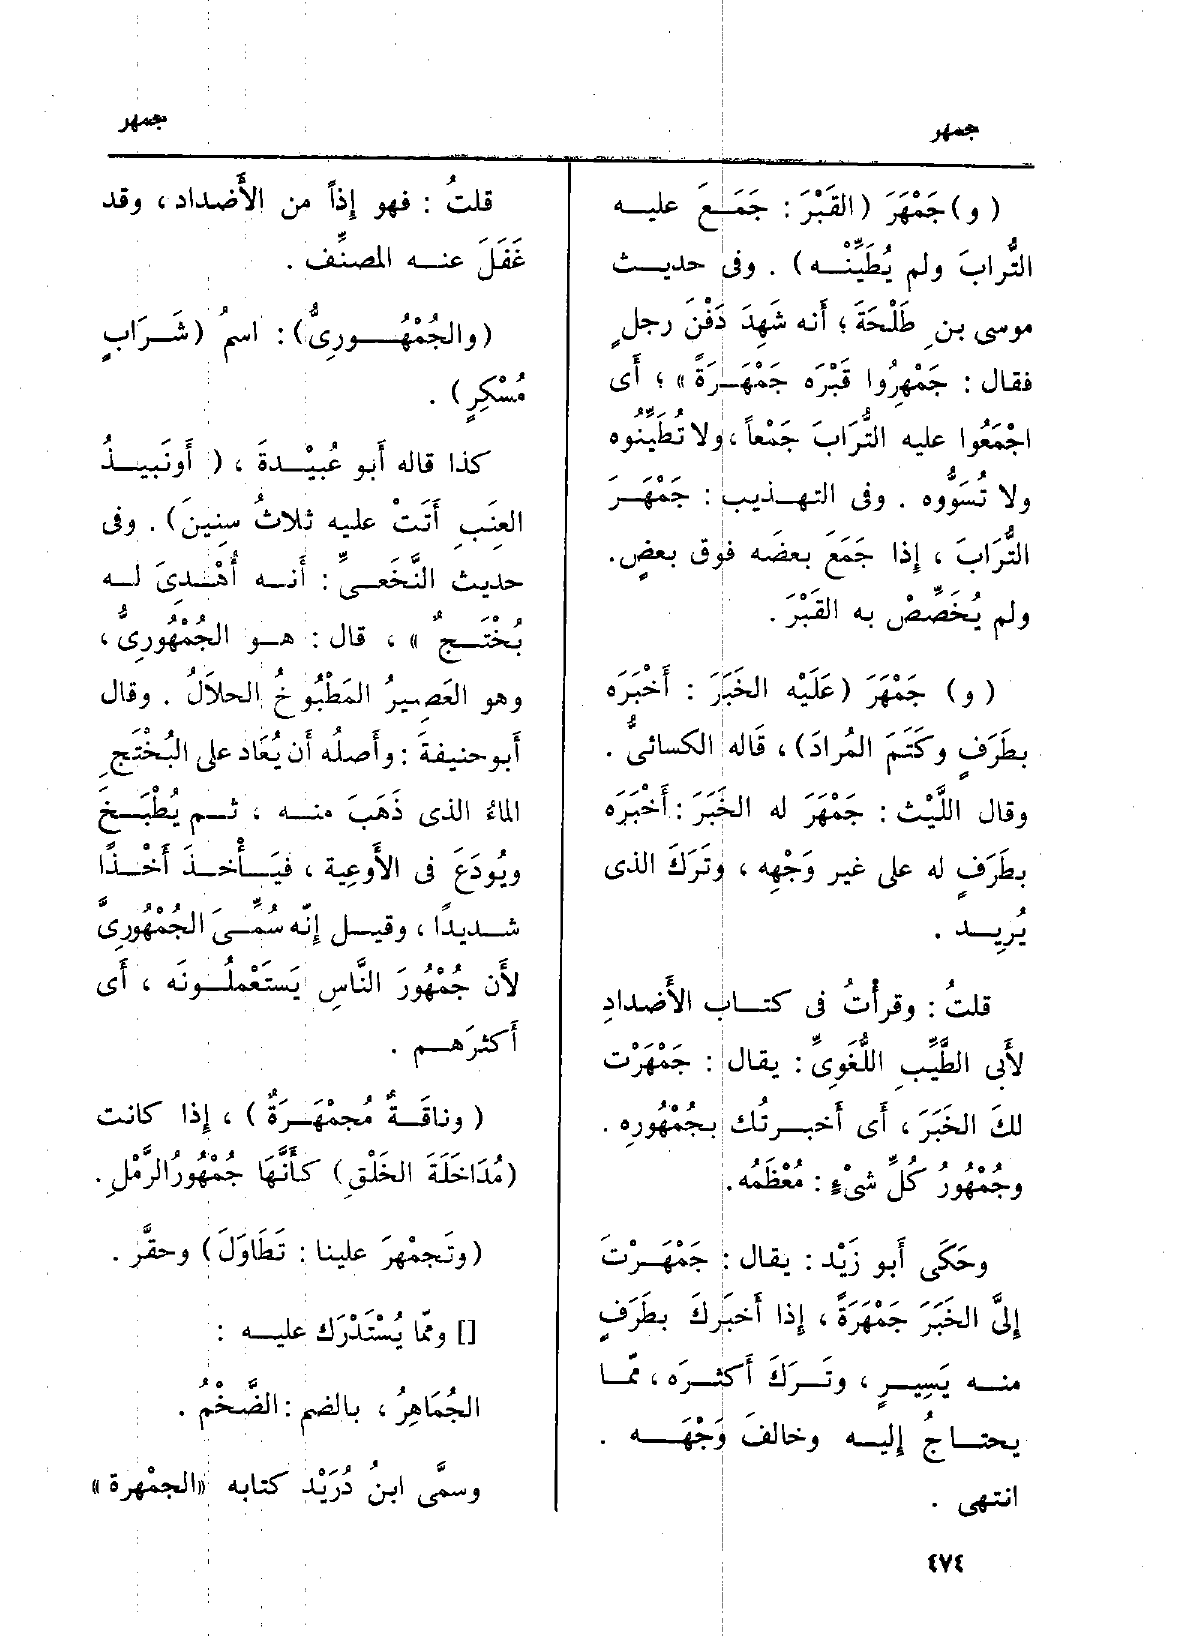 جمهر
جمهر
(و) جَمْهَرَ (القَبْرَ : جَمَعَ عليه
التُّرابَ ولم يُطَيِّنْه) . وفى حديث
موسى بنِ طَلْحَةَ ؛ أنه شَهِدَ دَفْنَ رجلٍ
فقال : جَمْهِرُوا قَبْرَه جَمْهَرَةً » ؛ أَى
اجْمَعُوا عليه التُّرَابَ جَمْعاً ، ولا تُطَيِّنُوه
ولا تُسَوُّوه . وفى التهذيب : جَمْهَرَ
التُّرَابَ ، إذا جَمَعَ بعضَه فوق بعضٍ.
ولم يُخَصِّصْ به القَبْرَ .
(و) جَمْهَرَ (عَلَيْه الخَبَرَ : أَخْبَرَه
بطَرَفٍ وكَتَمَ المُرادَ) ، قَاله الكسائىُّ .
وقال اللَّيْث : جَمْهَرَ له الخَبَرَ : أَخْبَرَه
بطَرَفٍ له على غير وَجْهِه ، وتَرَكَ الذى
يُرِيد .
قلتُ : وقرأْتُ فى كتاب الأَضدادِ
لأَبى الطَّيِّبِ اللُّغَوِىِّ : يقال : جَمْهَرْت
لكَ الخَبَرَ ، أَى أَخبرتُك بجُمْهُورِه .
وجُمْهُورُ كُلِّ شىْءٍ : مُعْظَمُه .
وحَكَى أَبو زَيْد : يقال : جَمْهَرْتَ
إلىَّ الخَبَرَ جَمْهَرَةً ، إذا أَخبَركَ بطَرَفٍ
منه يَسِيرٍ ، وتَرَكَ أَكثرَه ، ممّا
يحتاجُ إليه وخالفَ وَجْهَه .
انتهى .
قلتُ : فهو إذاً من الأَضداد ، وقد
غَفَلَ عنه المصنِّف .
(والجُمْهُورِىُّ) : اسمُ (شَرَابٍ
مُسْكِرٍ) .
كذا قاله أَبو عُبيْدةَ ، (أَونَبيذُ
العِنَبِ أَتَتْ عليه ثلاثُ سِنِينَ) . وفى
حديث النَّخَعىِّ : أَنه أُهْدِىَ له
بُخْتَجٌ » ، قال : هو الجُمْهُورىُّ ،
وهو العَصِيرُ المَطْبُوخُ الحلاَلُ . وقال
أَبو حنيفةَ : وأَصلُه أَن يُعَاد على البُخْتَجِ
الماءُ الذى ذَهَبَ منه ، ثم يُطْبَخَ
ويُودَعَ فى الأَوعِية ، فيَأْخذَ أَخْذًا
شديدًا ، وقيل إنّه سُمِّىَ الجُمْهُورِىَّ
لأَن جُمْهُورَ النَّاسِ يَستَعْملُونَه ، أَى
أَكثرَهم .
(وناقَةٌ مُجمْهَرَةٌ) ، إذا كانت
(مُدَاخَلَةَ الخَلْقِ) كأَنَّهَا جُمْهُورُ الرَّمْلِ.
(وتَجمْهرَ علينا : تَطَاوَلَ) وحقَّر .
[] وممّا يُسْتَدْرَك عليه :
الجُمَاهِرُ ، بالضم : الضَّخْمُ .
وسمَّى ابنُ دُرَيْد كتابه «الجمْهرة»
٤٧٤